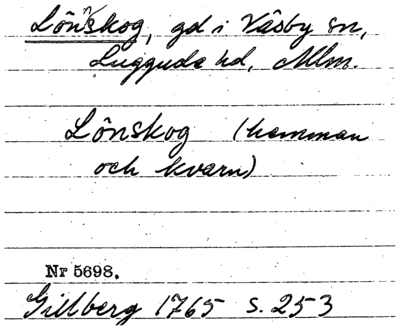 Lönnskog, gd i Väsby sn,
Luggude hd, Mlm.
Lönskog (hemman
och kvarn)
Nr 5698.
Gillberg 1765 s. 253